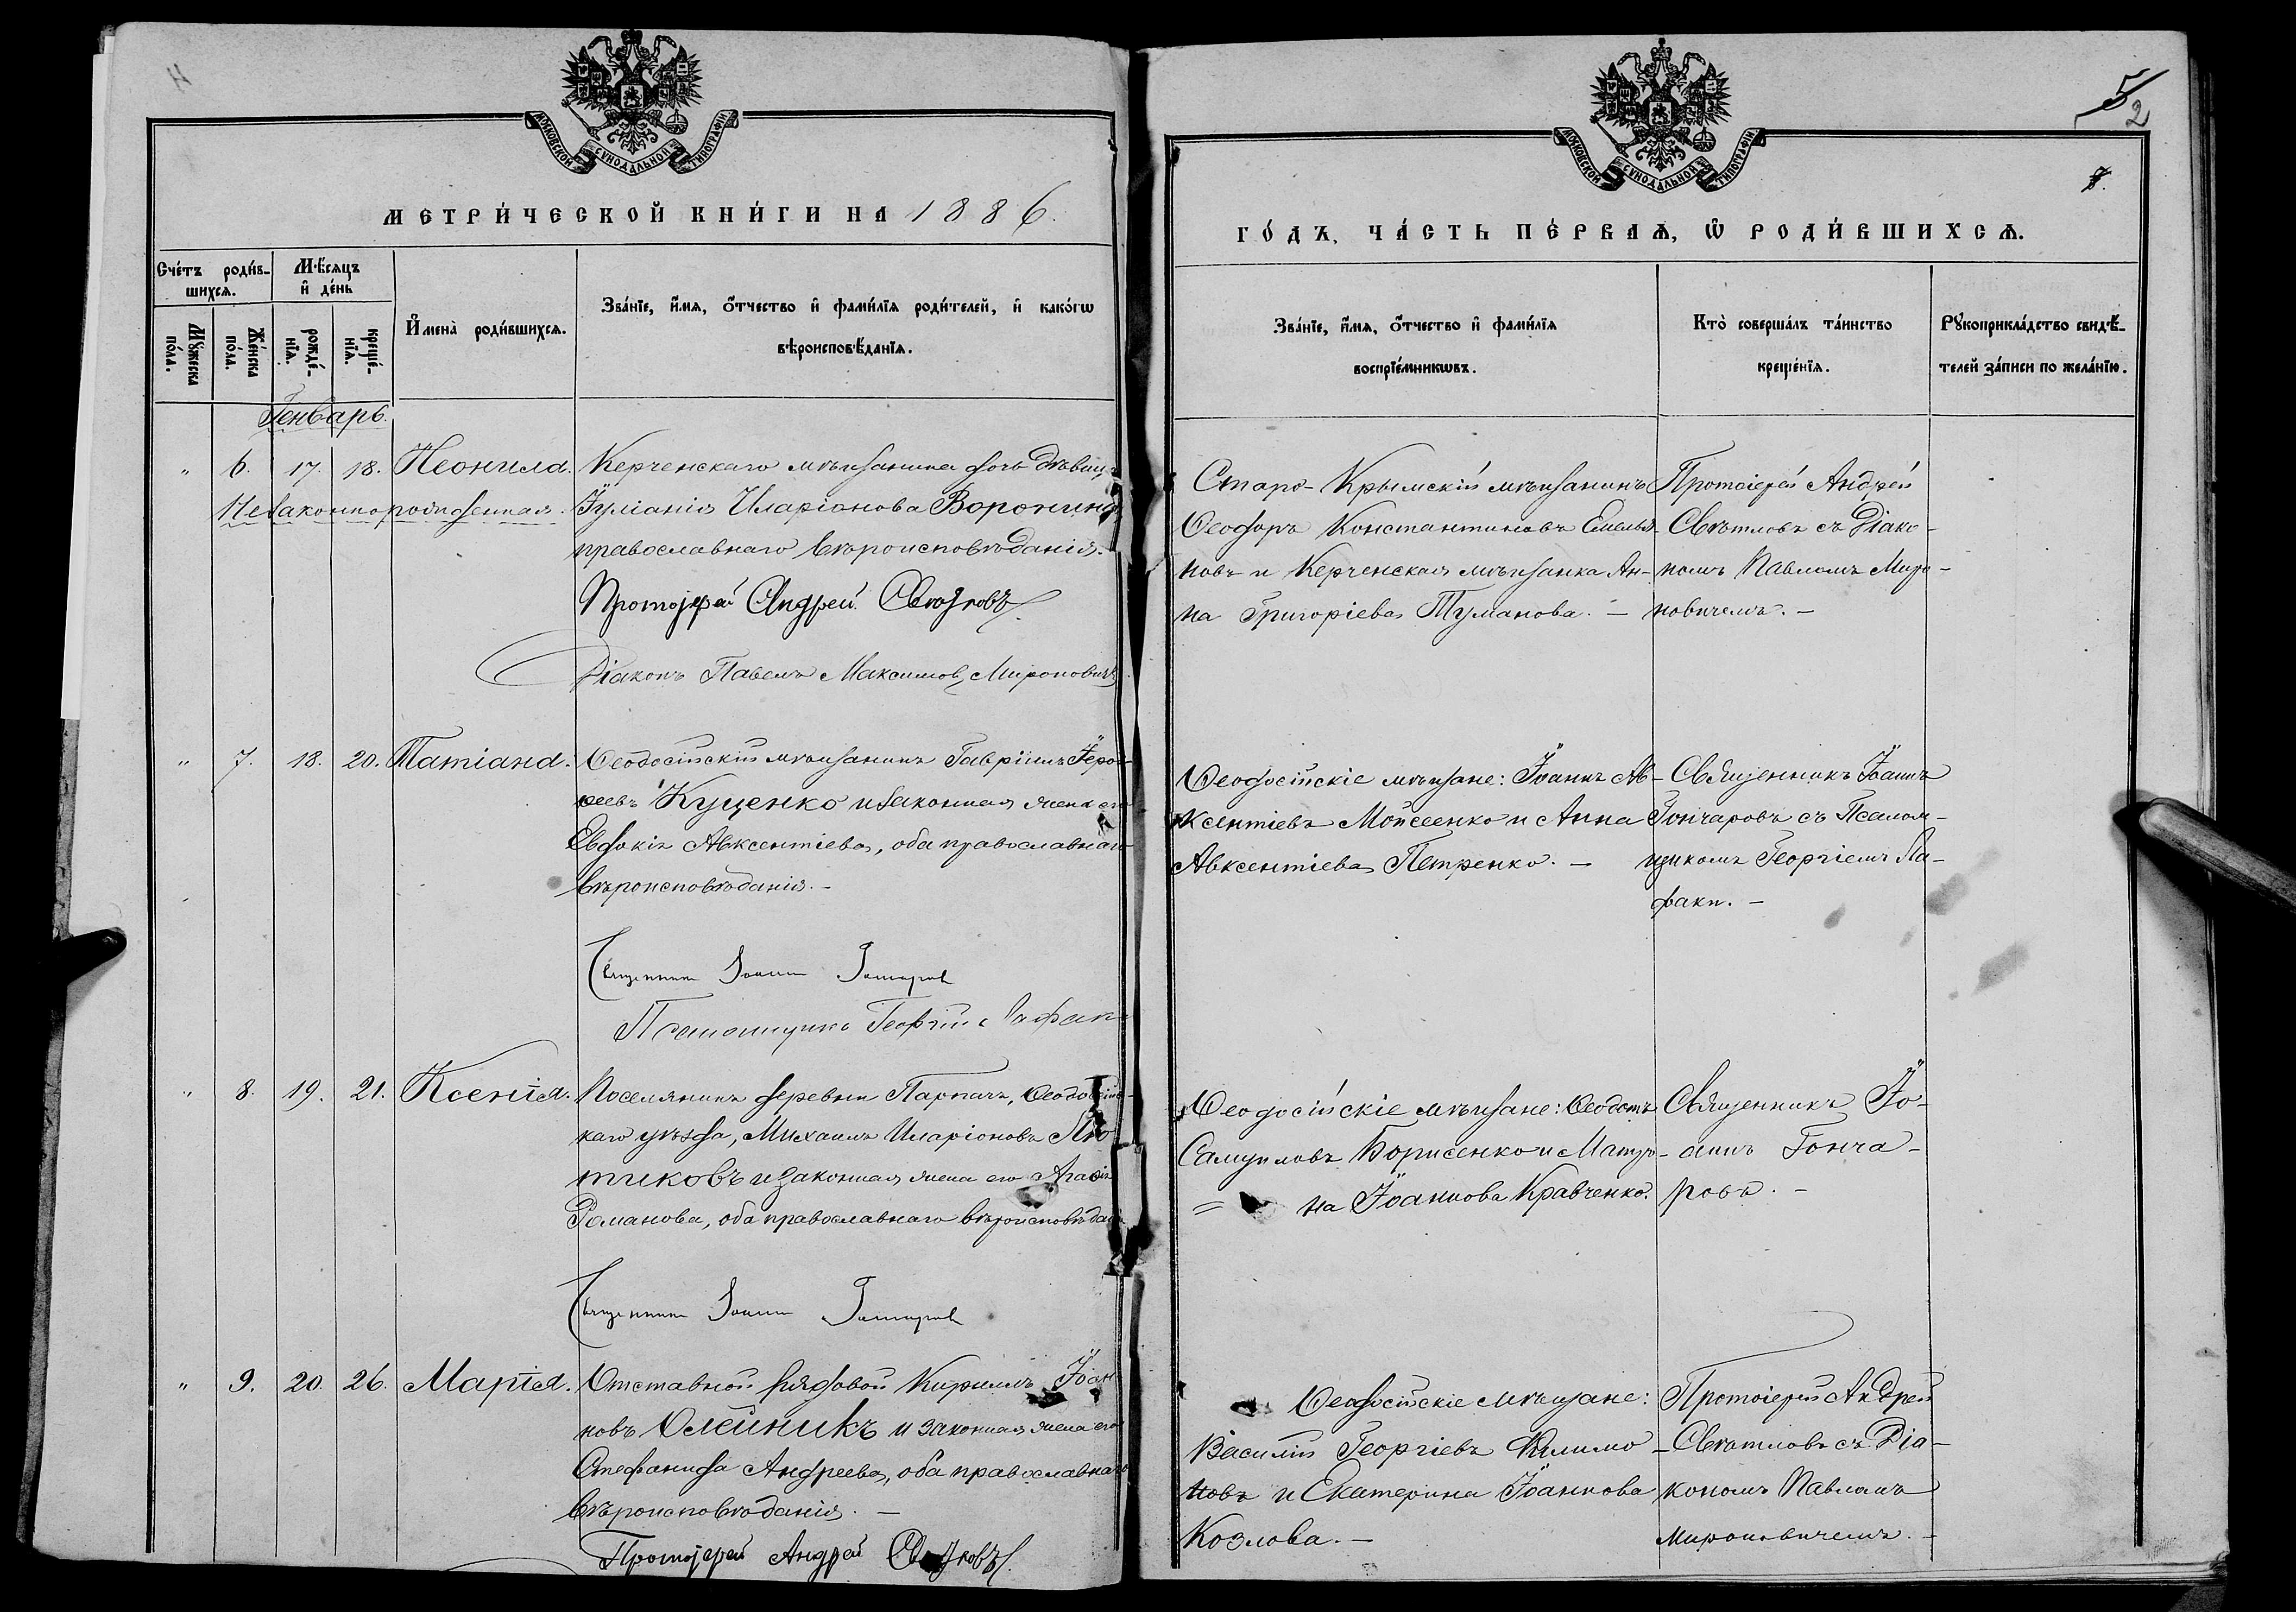 МОСКОВСКОЙ СѴНОДАЛЬНОЙ ТИПОГРАФІИ
МЕТРИ́ЧЕСКОЙ КНИ́ГИ НА 1886.
Сче́тъ роди́в-
шихся.
Мѣ́сяцъ
и҆ де́нь
Мꙋ́жеска
по́ла.
Же́нска
по́ла.
рожде́-
нїѧ.
креще́-
нїѧ.
И҆мена̀ роди́вшихся.
Зва́нїе, и҆́мя, ѻ҆́тчество и҆ фами́лїя роди́телей, и҆ како́гѡ
вѣроисповѣ́данїя.
Генварь.
" 6. 17. 18. Неонила. Керченскаго мѣщанина дочь дѣвица
Незаконнорожденная. Іуліанія Иларіонова Воронина
православнаго вѣроисповѣданія.
Протоіерей Андрей Свѣтловъ
Діаконъ Павелъ Максимов. Мироновичъ
" 7. 18. 20. Татіана. Ѳеодосійскій мѣщанинъ Гавріилъ Іеро-
ѳеевъ Куценко и законная жена его
Евдокія Авксентіева, оба православнаго
вѣроисповѣданія. -
Священник Іоанн Гончаров
Псаломщикъ Георгій Лафаки
" 8. 19. 21. Ксенія. Поселянинъ деревни Парпачъ, Ѳеодосійс-
каго уѣзда, Михаилъ Иларіоновъ Лю
тиковъ и законная жена его Агаѳія
Романова, оба православнаго вѣроисповѣдан
Священник Іоанн Гончаров
" 9. 20. 26. Марія. Отставной рядовой Кириллъ Іоан-
новъ Олейникъ и законная жена его
Стефанида Андреева, оба православнаго
вѣроисповѣданія. -
Протоіерей Андрей Свѣтловъ
5 2
7.
МОСКОВСКОЙ СѴНОДАЛЬНОЙ ТИПОГРАФІИ
ГО́ДЪ, ЧА́СТЬ ПЕ́РВАѦ, Ѡ҆ РОДИ́ВШИХСѦ.
Зва́нїе, и҆́мя, ѻ҆́тчество и҆ фами́лїя
воспрїе́мникѡвъ.
Кто̀ соверша́лъ та́инство
креще́нїя.
Рꙋкоприкла́дство свидѣ́-
телей за́писи по жела́нїю.
Старо-Крымскій мѣщанинъ
Ѳеодоръ Константиновъ Емелья-
новъ и Керченская мѣщанка Ан-
на Григоріева Туманова. -
Протоіерей Андрей
Свѣтловъ съ Діако-
номъ Павломъ Миро-
новичемъ. -
Ѳеодосійскіе мѣщане: Іоаннъ Ав-
ксентіевъ Мойсеенко и Анна
Авксентіева Петренко. -
Священникъ Іоаннъ
Гончаровъ съ Псалом-
щикомъ Георгіемъ Ла-
факи. -
Ѳеодосійскіе мѣщане: Ѳеодотъ
Самуиловъ Борисенко и Матро-
= на Іоаннова Кравченко.
Священникъ Іо-
аннъ Гонча-
ровъ. -
Ѳеодосійскіе мѣщане:
Василій Георгіевъ Филимо-
новъ и Екатерина Іоаннова
Козлова. -
Протоіерей Андрей
Свѣтловъ съ Діа-
кономъ Павломъ
Мироновичемъ. -